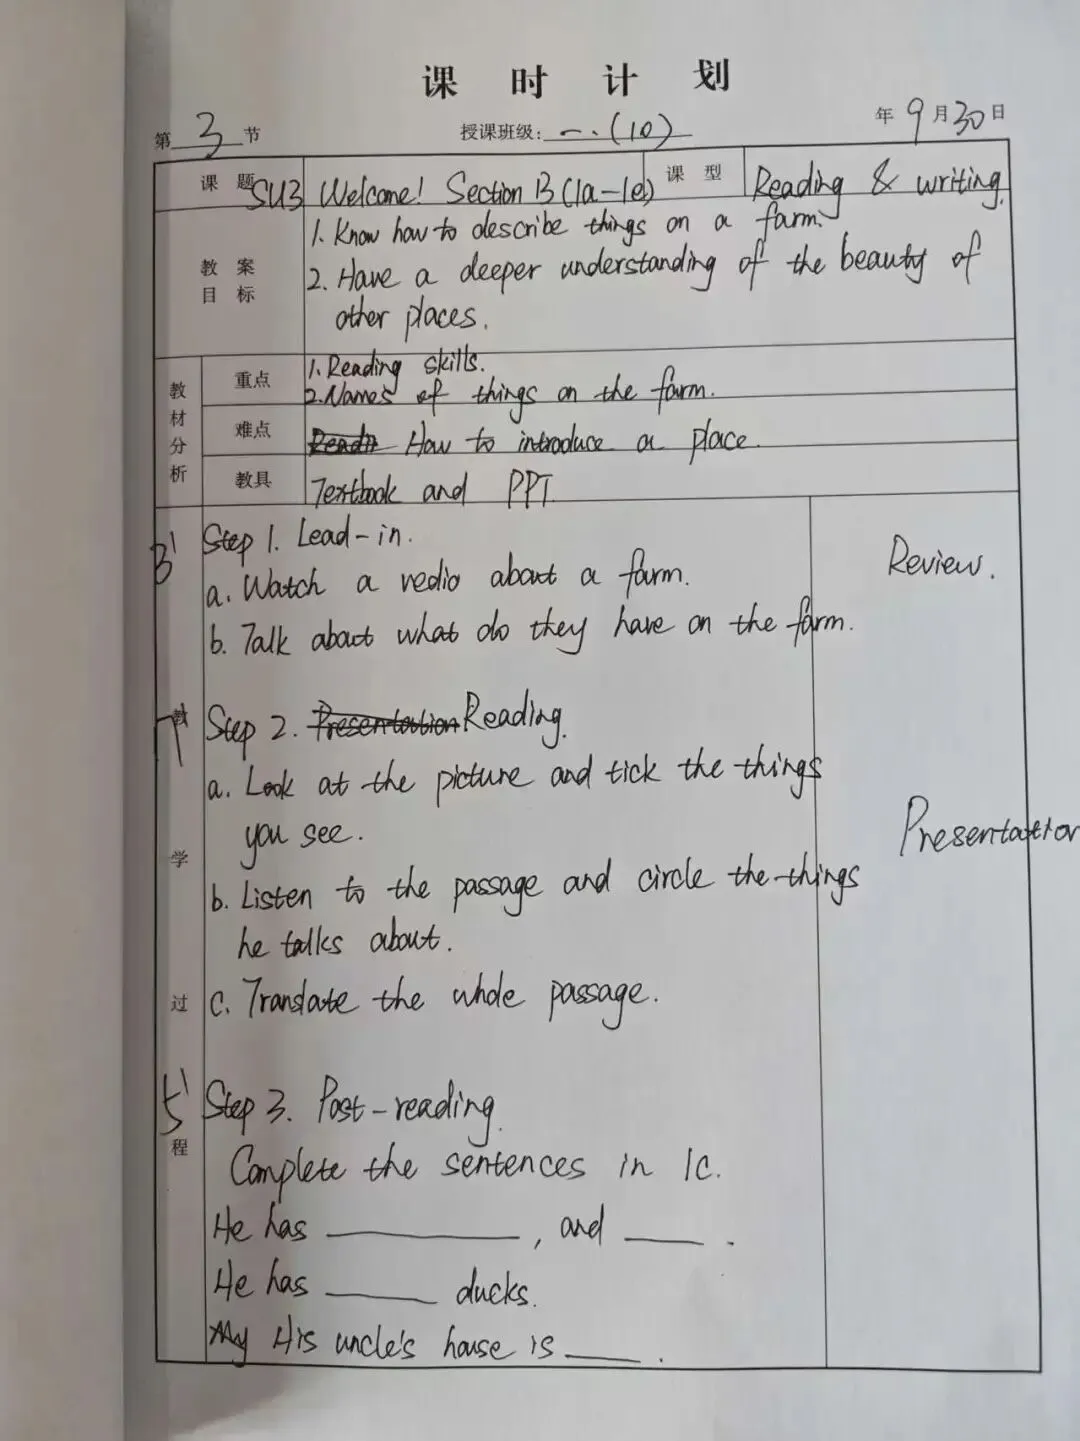 课 时 计 划
第 3 节 授课班级: 一.(10) 年 9 月 30 日
课 题 SU3 Welcome! Section B (1a-1e) 课 型 Reading & writing.
教 案 目 标
1. Know how to describe things on a farm.
2. Have a deeper understanding of the beauty of
other places.
教 材 分 析
重点 1. Reading skills.
2. Names of things on the farm.
难点 How to introduce a place.
教具 Textbook and PPT.
教 学 过 程
3' Step 1. Lead-in. Review.
a. Watch a vedio about a farm.
b. Talk about what do they have on the farm.
Step 2. Presentation Reading.
a. Look at the picture and tick the things
you see. Presentation
b. Listen to the passage and circle the things
he talks about.
c. Translate the whole passage.
5' Step 3. Post-reading.
Complete the sentences in 1c.
He has ________, and ____.
He has _____ ducks.
My His uncle's house is ____.